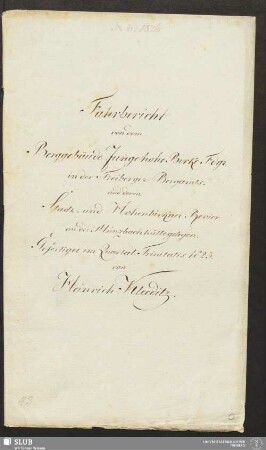 Fahrbericht
von dem
Berggebäude Junge hohe Birke Fdgr.
in der Freiberger Bergamts-
und deren
Stadt- und Hohenbirkner Revier
an der Münzbachhütte gelegen.
Gefertiget im Quartal Trinitatis 1823.
von
Heinrich
SLUB
Wir führen Wissen.